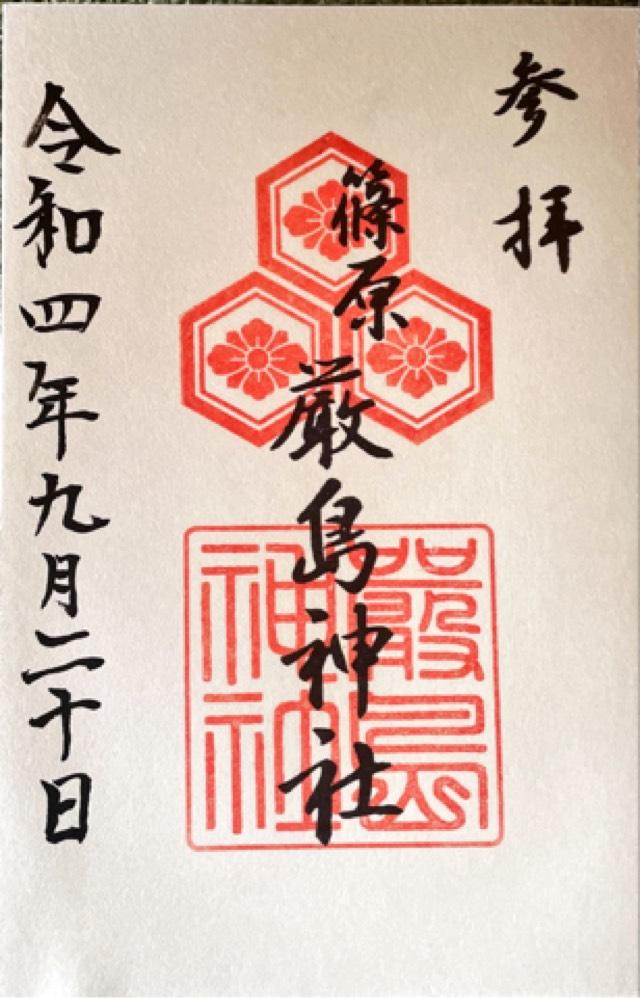 参拝
篠原厳島神社
嚴島
神社
令和四年九月二十日